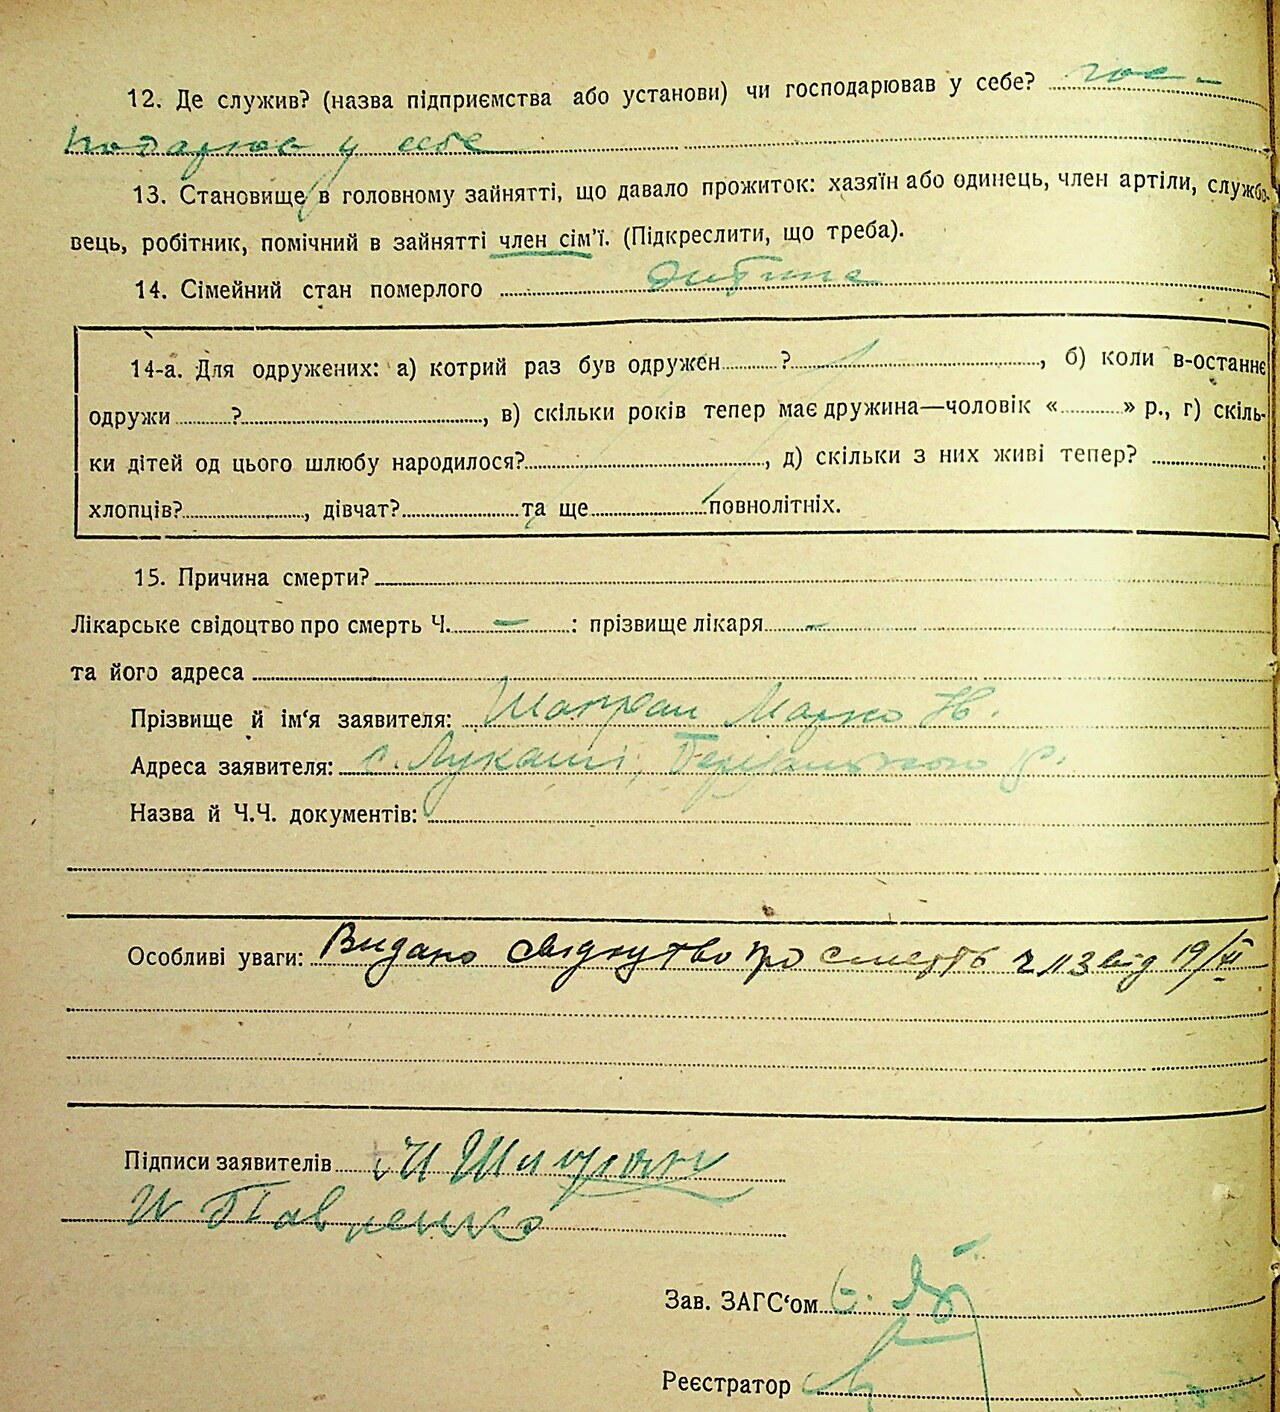 12. Де служив? (назва підприємства або установи) чи господарював у себе? гос-
подарював у себе
13. Становище в головному зайнятті, що давало прожиток: хазяїн або одинець, член артілі, службо-
вець, робітник, помічний в зайнятті член сім'ї. (Підкреслити, що треба).
14. Сімейний стан померлого дитина
14-а. Для одружених: а) котрий раз був одружен ?, б) коли в-останнє
одружи ?, в) скільки років тепер має дружина—чоловік « » р., г) скіль-
ки дітей од цього шлюбу народилося?, д) скільки з них живі тепер?
хлопців?, дівчат? та ще повнолітніх.
15. Причина смерти?
Лікарське свідоцтво про смерть Ч. — : прізвище лікаря —
та його адреса
Прізвище й ім'я заявителя: Шапран Марко Н.
Адреса заявителя: с. Лукаші, р.
Назва й Ч.Ч. документів:
Особливі уваги: Видано свідоцтво про смерть ч 113 від 19/VI
Підписи заявителів М Шапран
И Павленко
Зав. ЗАГС'ом
Реєстратор